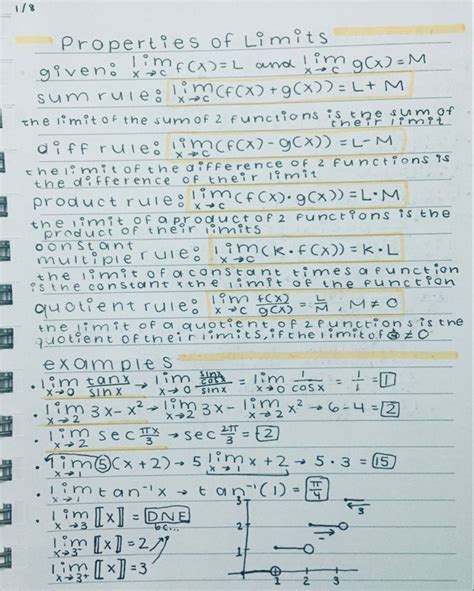 1/8
Properties of Limits
given: lim x→c f(x)=L and lim x→c g(x)=M
sum rule: lim x→c (f(x)+g(x))=L+M
the limit of the sum of 2 functions is the sum of
their limit
diff rule: lim x→c (f(x)-g(x))=L-M
the limit of the difference of 2 functions is
the difference of their limit
product rule: lim x→c (f(x)·g(x))=L·M
the limit of a product of 2 functions is the
product of their limits
constant
multiple rule: lim x→c (k·f(x))=k·L
the limit of a constant times a function
is the constant x the limit of the function
quotient rule: lim x→c f(x)/g(x) = L/M, M≠0
the limit of a quotient of 2 functions is the
quotient of their limits, if the limit of ≠0
examples
· lim x→0 tanx/sinx → lim x→0 (sinx/cosx)/sinx = lim x→0 1/cosx = 1/1 = 1
· lim x→2 3x-x² → lim x→2 3x - lim x→2 x² → 6-4=2
· lim x→2 sec πx/3 → sec 2π/3 = 2
· lim x→1 5(x+2) → 5 lim x→1 x+2 → 5·3=15
· lim x→1 tan⁻¹x → tan⁻¹(1) = π/4
· lim x→3 [[x]] = DNE
bc...
lim x→3⁻ [[x]] = 2
lim x→3⁺ [[x]] = 3
3
2
1
1 2 3